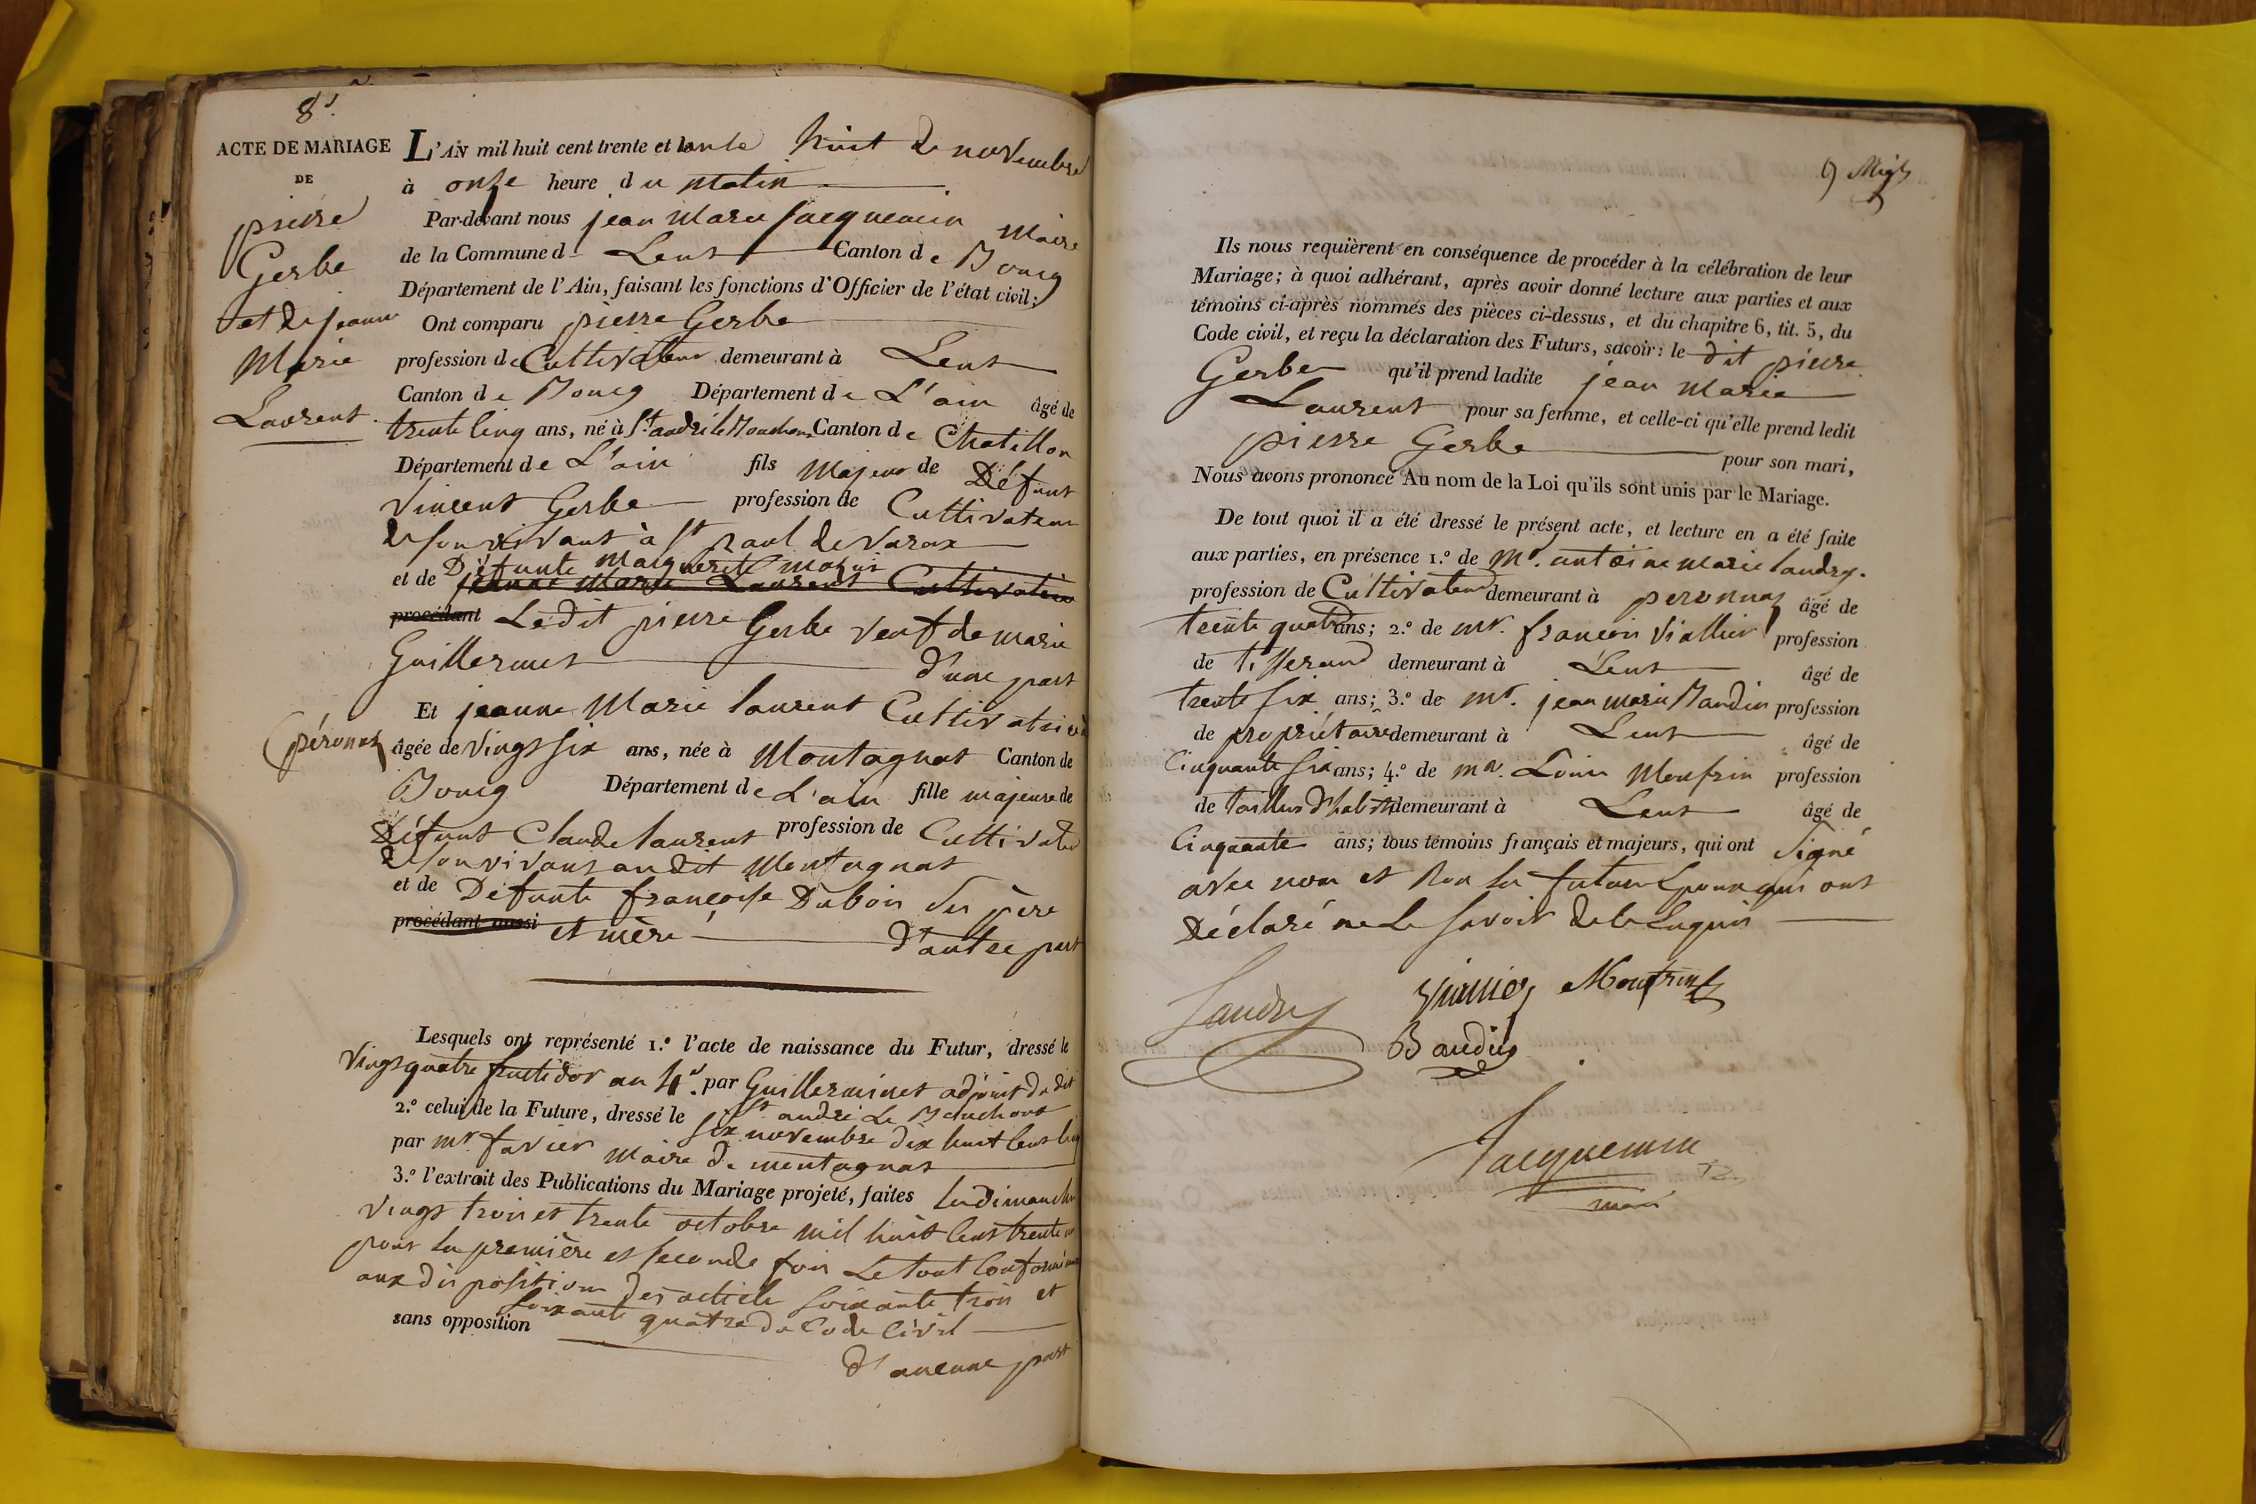 8.e
ACTE DE MARIAGE
DE
pierre
Gerbe
et De jeanne
Marie
Laurent
L'AN mil huit cent trente et un le huit de novembre
à onze heure du Matin
Par-devant nous jean Marie Jacquemin Maire
de la Commune d Lent Canton de Bourg
Département de l'Ain, faisant les fonctions d'Officier de l'état civil;
Ont comparu pierre Gerbe
profession de Cultivateur demeurant à Lent
Canton de Bourg Département de L'ain âgé de
trente cinq ans, né à St andré le Bouchoux Canton de Chatillon
Département de L'ain fils Majeur de Défunt
Vincent Gerbe profession de Cultivateur
de son vivant à St paul de varax
et de Défunte Marguerite
jeanne Marie Laurent Cultivatrice
procédant Ledit pierre Gerbe veuf de marie
Guillerminet d'une part
Et jeanne Marie laurent Cultivatrice
(péronas
âgée de vingt six ans, née à Montagnat Canton de
Bourg Département de L'ain fille majeure de
Défunt Claude laurent profession de Cultivateur
de son vivant au dit Montagnat
et de Défunte françoise Dubois ses père
procédant aussi et mère d'autre part
Lesquels ont représenté 1.º l'acte de naissance du Futur, dressé le
vingt quatre fructidor an 4.e par Guillerminet adjoint du dit
St andré Le Bouchoux
2.º celui de la Future, dressé le six novembre dix huit cent cinq
par mr favier Maire de montagnat
3.º l'extrait des Publications du Mariage projeté, faites les dimanche
vingt trois et trente octobre mil huit cent trente un
pour la première et seconde fois Le tout conformément
aux dispositions des article soixante trois et
soixante quatre du Code Civil
sans opposition
d'aucune part
9
Ils nous requièrent en conséquence de procéder à la célébration de leur
Mariage; à quoi adhérant, après avoir donné lecture aux parties et aux
témoins ci-après nommés des pièces ci-dessus, et du chapitre 6, tit. 5, du
Code civil, et reçu la déclaration des Futurs, savoir: le dit pierre
Gerbe qu'il prend ladite jean Marie
Laurent pour sa femme, et celle-ci qu'elle prend ledit
pierre Gerbe pour son mari,
Nous avons prononcé Au nom de la Loi qu'ils sont unis par le Mariage.
De tout quoi il a été dressé le présent acte, et lecture en a été faite
aux parties, en présence 1.º de Mr. antoine marie landry.
profession de Cultivateur demeurant à peronnas âgé de
trente quatre ans; 2.º de mr. françois Viallier profession
de tisserand demeurant à Lent âgé de
trente six ans; 3.º de mr. jean marie Baudin profession
de propriétaire demeurant à Lent âgé de
Cinquante six ans; 4.º de mr. Louis Monfrin profession
de tailleur d'habits demeurant à Lent âgé de
Cinquante ans; tous témoins français et majeurs, qui ont signé
avec nous et non les futurs Epoux qui ont
Déclaré ne Le savoir de ce Enquis
Landry
Monfrin
Baudin
Jacquemin
maire